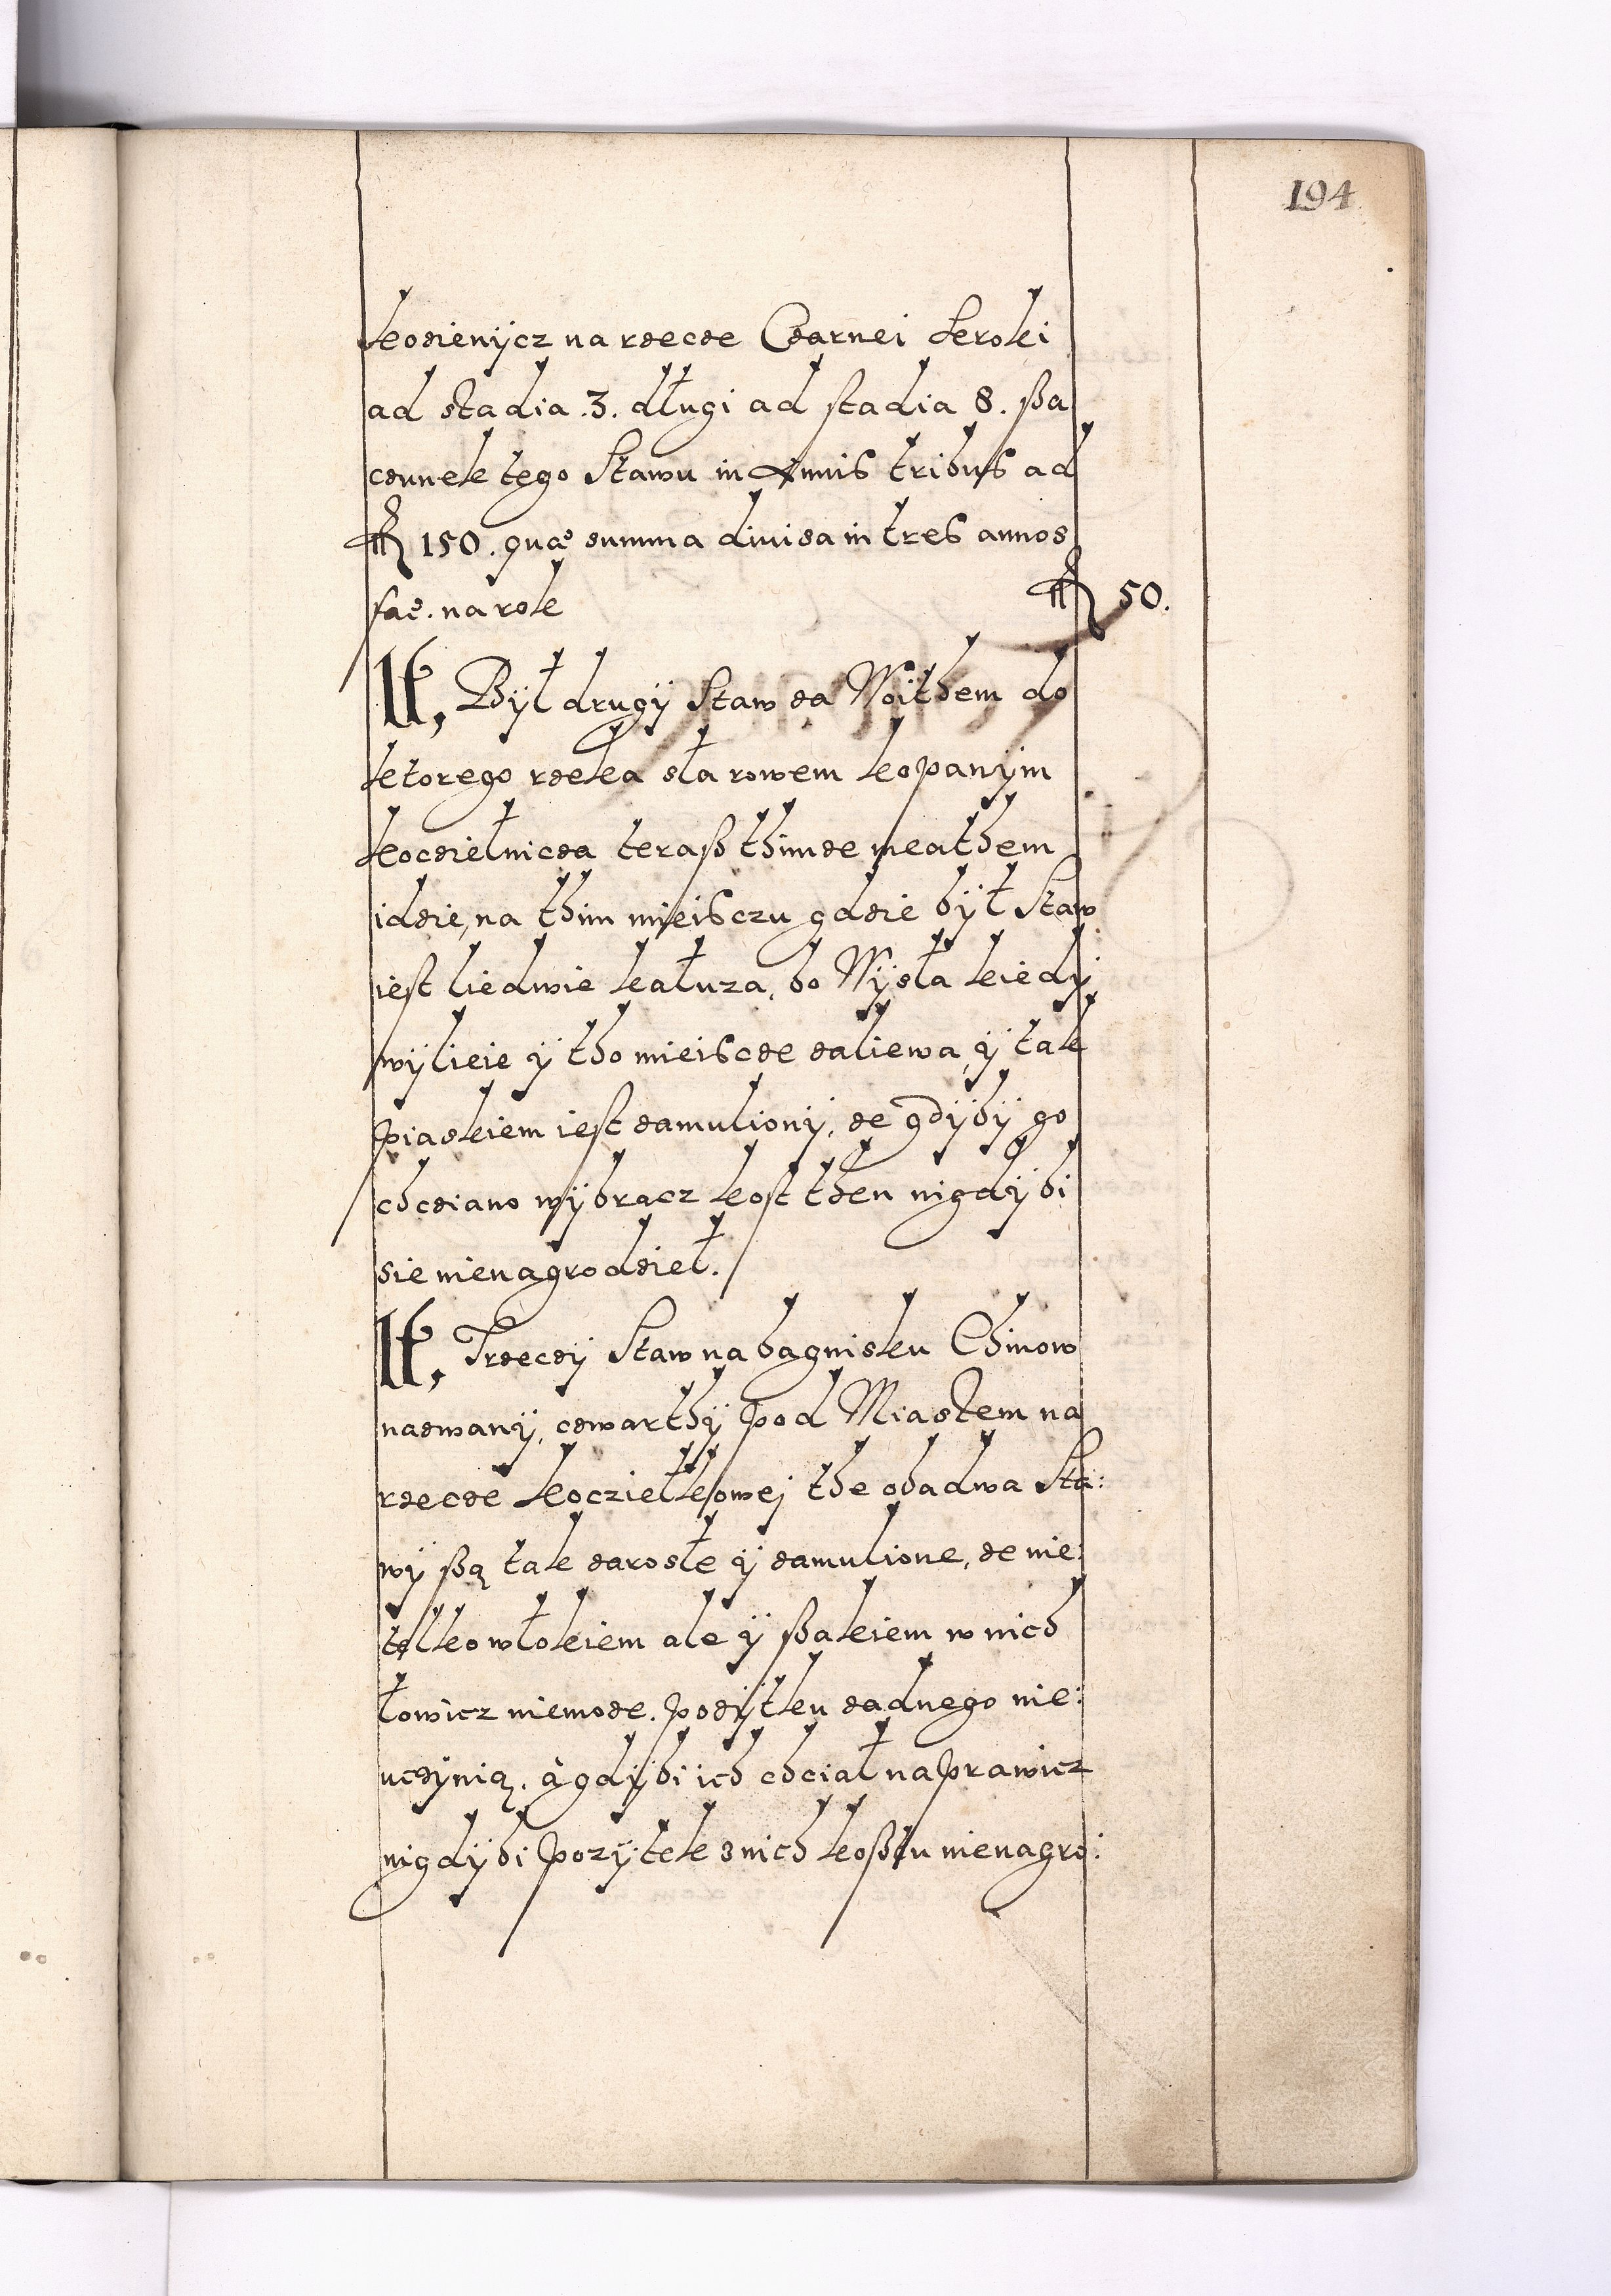 194
kozienijcz na rzecze Czarnei szeroki
ad stadia .3. długi ad stadia 8. ßa
czunek tego Stawu in Annis tribus ad
150. quæ summa diuisa in tres annos
fac. na rok 50.
It, Bijł drugij Staw za Woithem do
ktorego rzeka sła rowem kopanijm
koczielnicza teraß thimze meathem
idzie, na thim mieisczu gdzie bijł Staw
iest liedwie kałuza, bo Wijsła kiedij
wijlieie ij tho mieiscze zaliewa, ij tak
piaskiem iest zamulionij, ze gdijbij go
chcziano wijbracz kost then nigdij bi
sie nienagrodzieł.
It, Trzeczij Staw na bagnisku Chinow
nazwanij, czwarthij pod Miastem na
rzecze koczielkowej the obadwa Sta:
wij ßą tak zarosłe ij zamulione, ze nie:
telko włokiem ale ij ßakiem w nich
łowicz niemoze. pozijtku zadnego nie:
uczijnią. à gdijbi ich chciał naprawicz
nigdijbi pozijtek z nich koßtu nienagro: